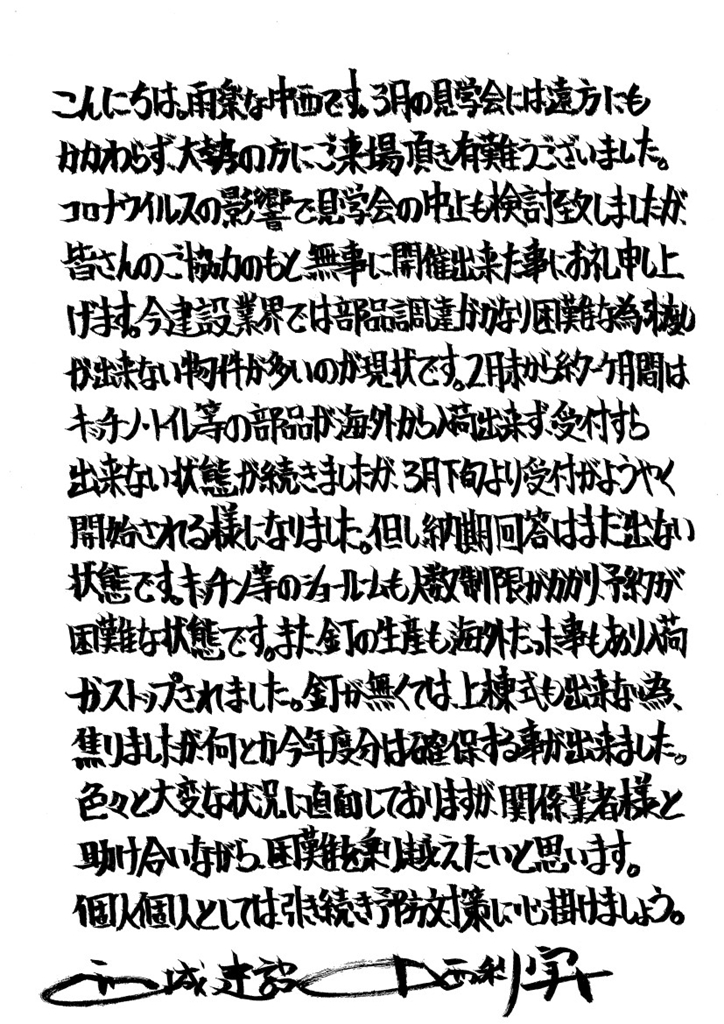 こんにちは。雨楽な中西です。3月の見学会には遠方にも
かかわらず、大勢の方にご来場頂き有難うございました。
コロナウイルスの影響で見学会の中止も検討致しましたが、
皆さんのご協力のもと無事に開催出来た事にお礼申し上
げます。今建設業界では部品調達がかなり困難な為引渡し
が出来ない物件が多いのが現状です。2月末から約一ヶ月間は
キッチン・トイレ等の部品が海外から入荷出来ず、受付すら
出来ない状態が続きましたが、3月下旬より受付がようやく
開始される様になりました。但し納期回答はまだ出ない
状態です。キッチン等のショールームも人数制限がかかり予約が
困難な状態です。また釘の生産も海外だった事もあり入荷
がストップされました。釘が無くては、上棟式も出来ない為、
焦りましたが何とか今年度分は確保する事が出来ました。
色々と大変な状況に直面しておりますが、関係業者様と
助け合いながら、困難を乗り越えたいと思います。
個人個人としては引き続き予防対策に心掛けましょう。
成建設 中西利実